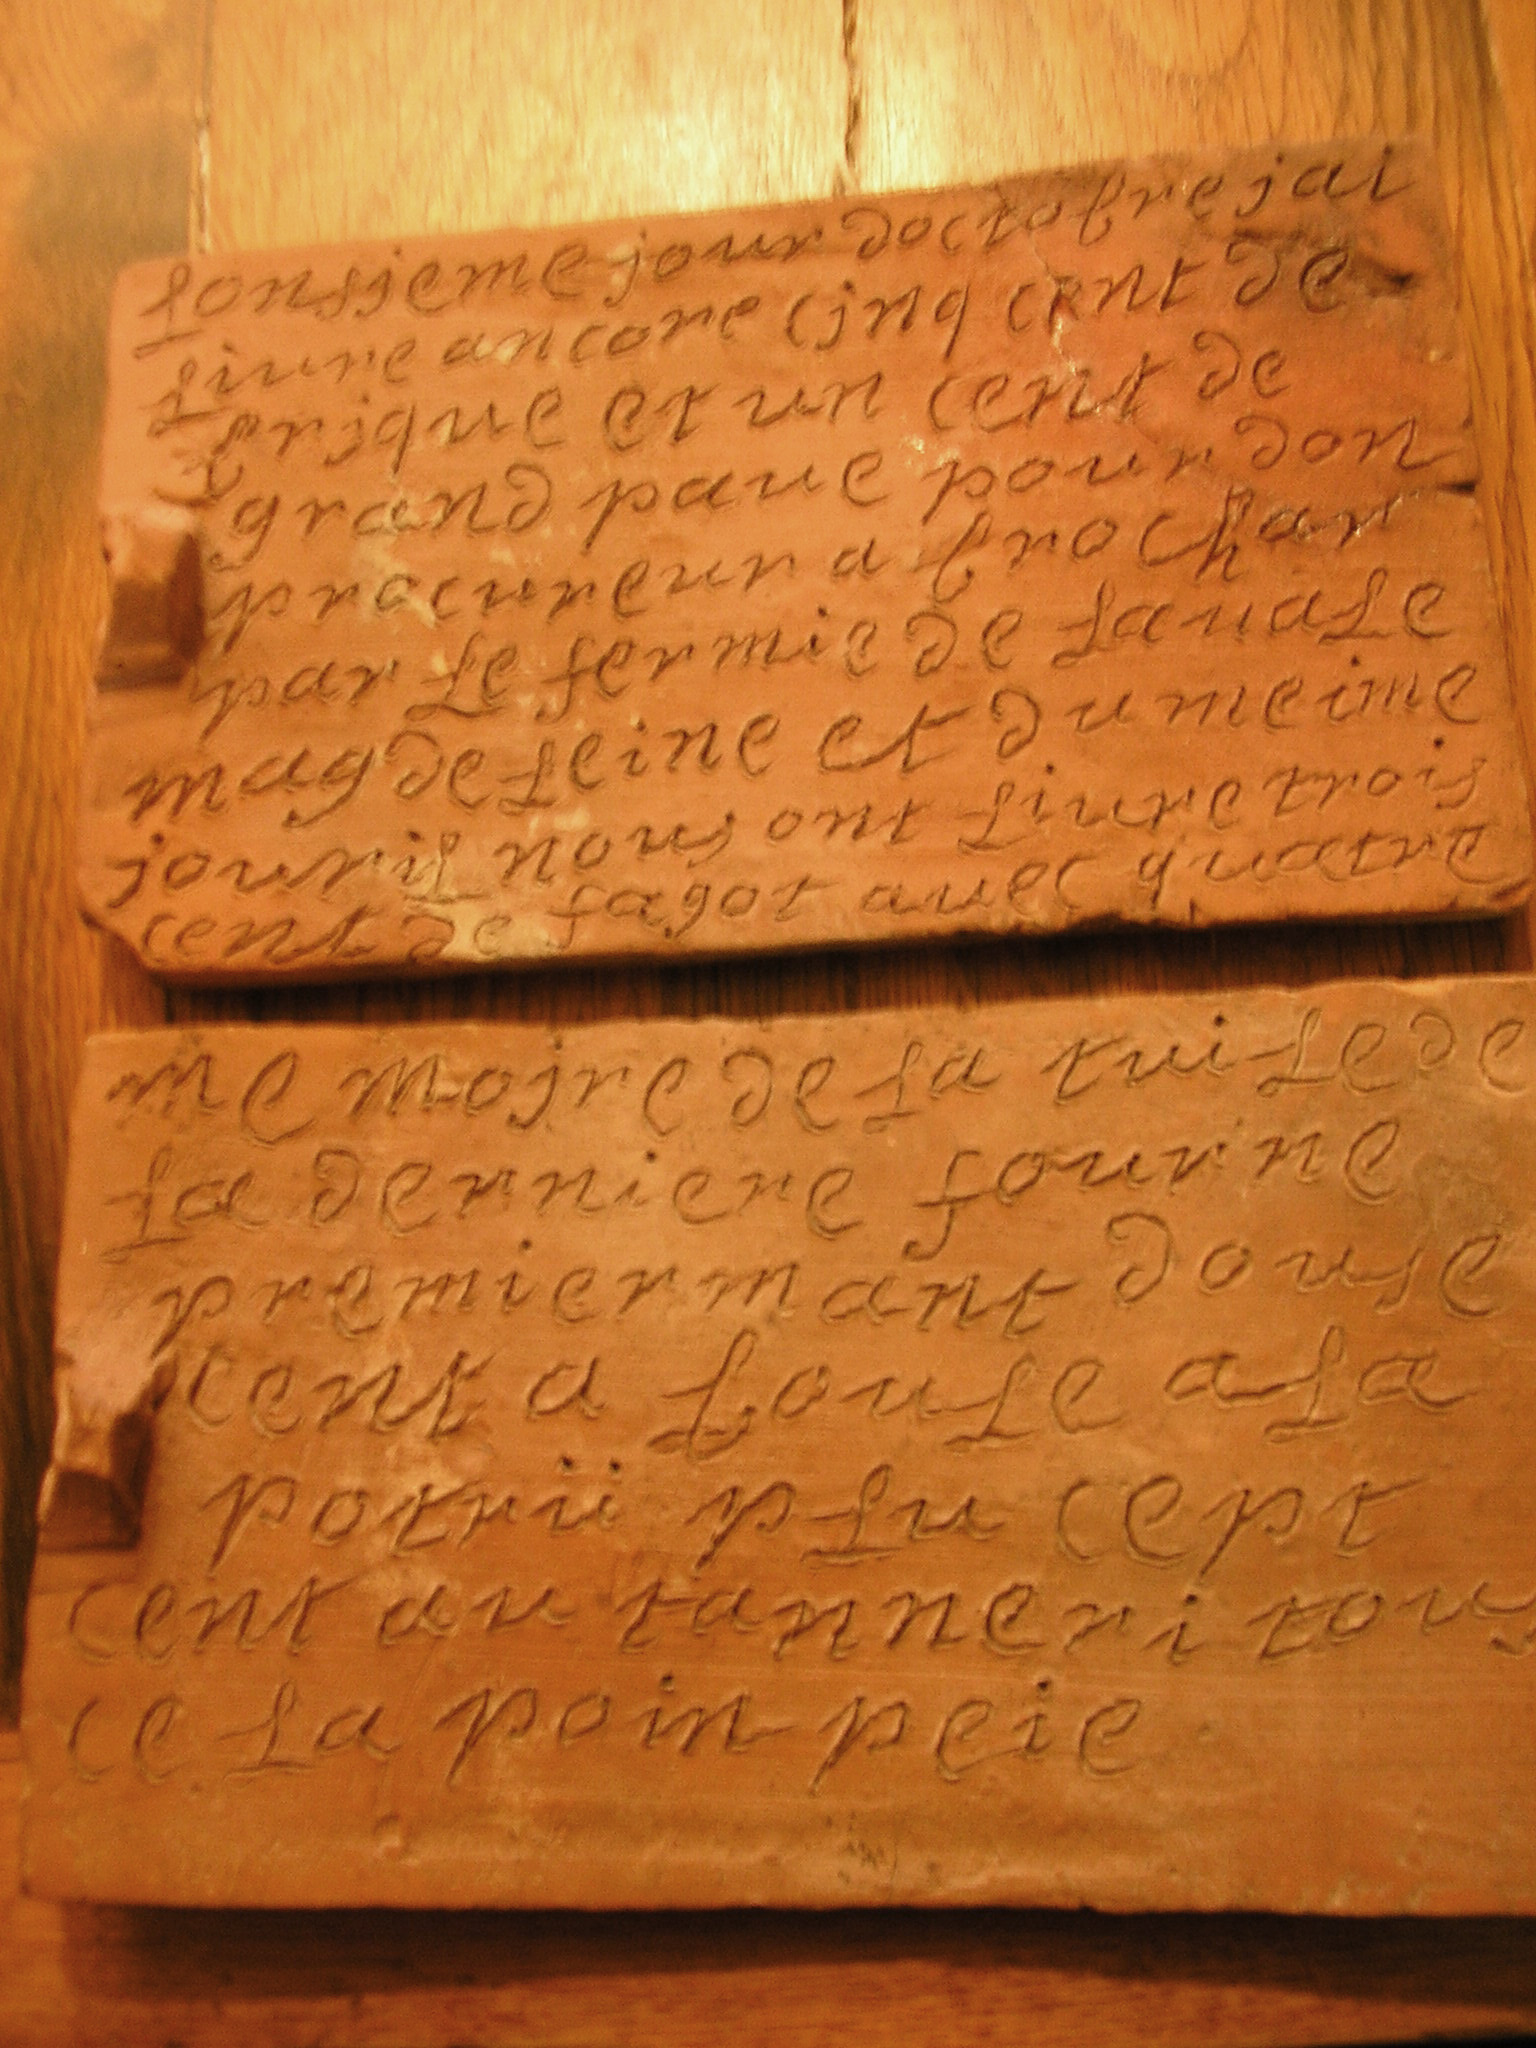 lonsieme jour doctobre jai
livre ancore cinq cent de
brique et un cent de
grand pave pour don
procureur a brochar
par le fermie de lauale
magdeleine et du meime
jour il nous ont livre trois
cent de fagot avec quatre
me moire de la tuile de
la derniere fourne
premiermant douse
cent a boule a la
potrii plu cept
cent au tanneri tous
ce la poin peie